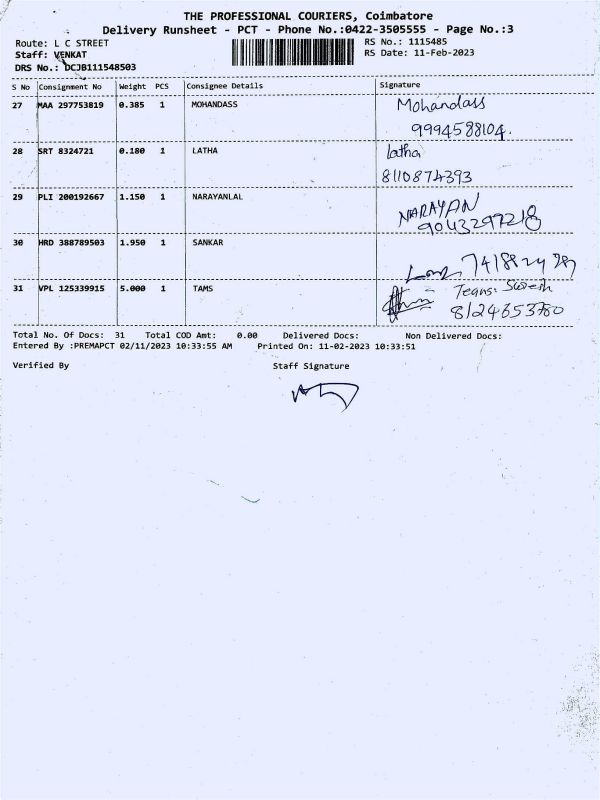 THE PROFESSIONAL COURIERS, Coimbatore
Delivery Runsheet - PCT - Phone No.:0422-3505555 - Page No.:3
Route: L C STREET
RS No.: 1115485
Staff: VENKAT
RS Date: 11-Feb-2023
DRS No.: DCJB111548503
S No Consignment No Weight PCS Consignee Details Signature
27 MAA 297753819 0.385 1 MOHANDASS Mohandass
9994588104.
28 SRT 8324721 0.180 1 LATHA latha
8110874393
29 PLI 200192667 1.150 1 NARAYANLAL NARAYAN
9043297218
30 HRD 388789503 1.950 1 SANKAR
31 VPL 125339915 5.000 1 TAMS Suresh
8124653780
Total No. Of Docs: 31 Total COD Amt: 0.00 Delivered Docs: Non Delivered Docs:
Entered By :PREMAPCT 02/11/2023 10:33:55 AM Printed On: 11-02-2023 10:33:51
Verified By Staff Signature